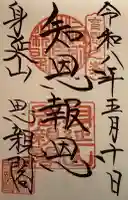 令和八年五月十日
知恩報恩
身延山 思親閣